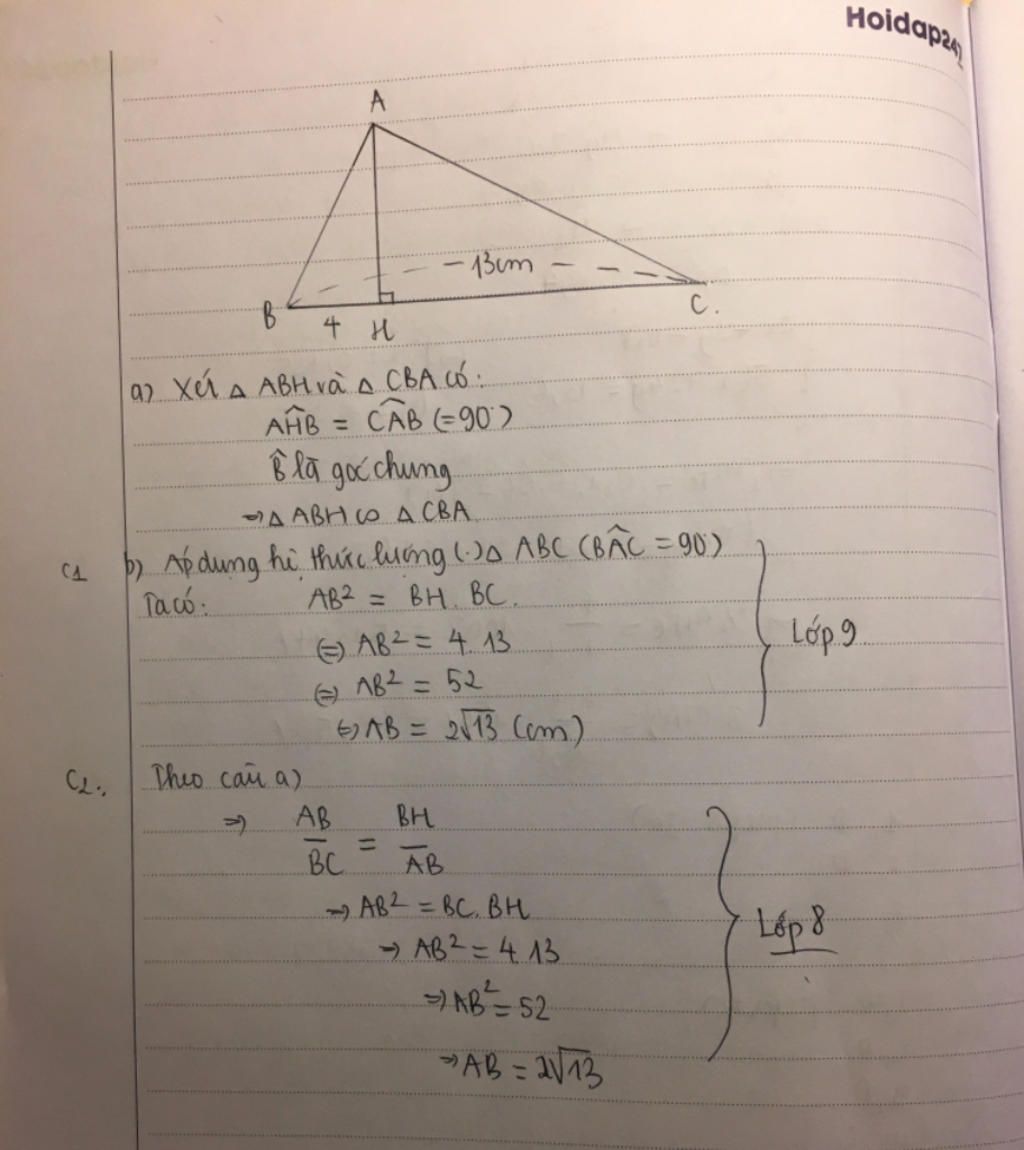 Hoidap247
A
13cm
B
4
H
C.
a) Xét △ ABH và △ CBA có:
AĤB = CÂB (=90°)
B̂ là góc chung
⇒ △ ABH ∽ △ CBA
C1 b) Áp dụng hệ thức lượng (.) △ ABC (BÂC = 90°)
Ta có: AB² = BH. BC.
(=) AB² = 4. 13
(=) AB² = 52
⇔ AB = 2√13 (cm)
Lớp 9
C2., Theo câu a)
⇒ AB/BC = BH/AB
⇒ AB² = BC. BH
⇒ AB² = 4. 13
⇒ AB² = 52
⇒ AB = 2√13
Lớp 8